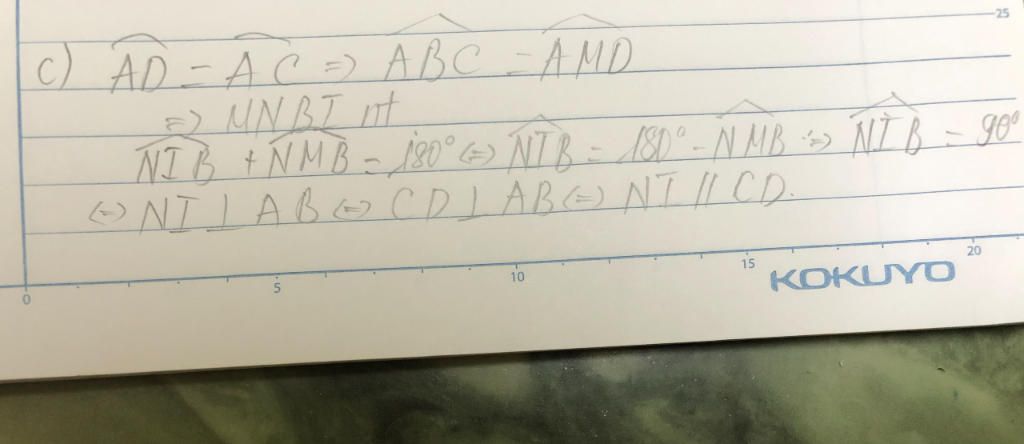 25
c) $\widehat{AD} = \widehat{AC} \Rightarrow \widehat{ABC} = \widehat{AMD}$
$\Rightarrow$ MNBI nt
$\widehat{NIB} + \widehat{NMB} = 180° \Leftrightarrow \widehat{NIB} = 180° - \widehat{NMB} \Rightarrow \widehat{NIB} = 90°$
$\Leftrightarrow NI \perp AB \Leftrightarrow CD \perp AB \Leftrightarrow NI // CD.$
0 5 10 15 20
KOKUYO